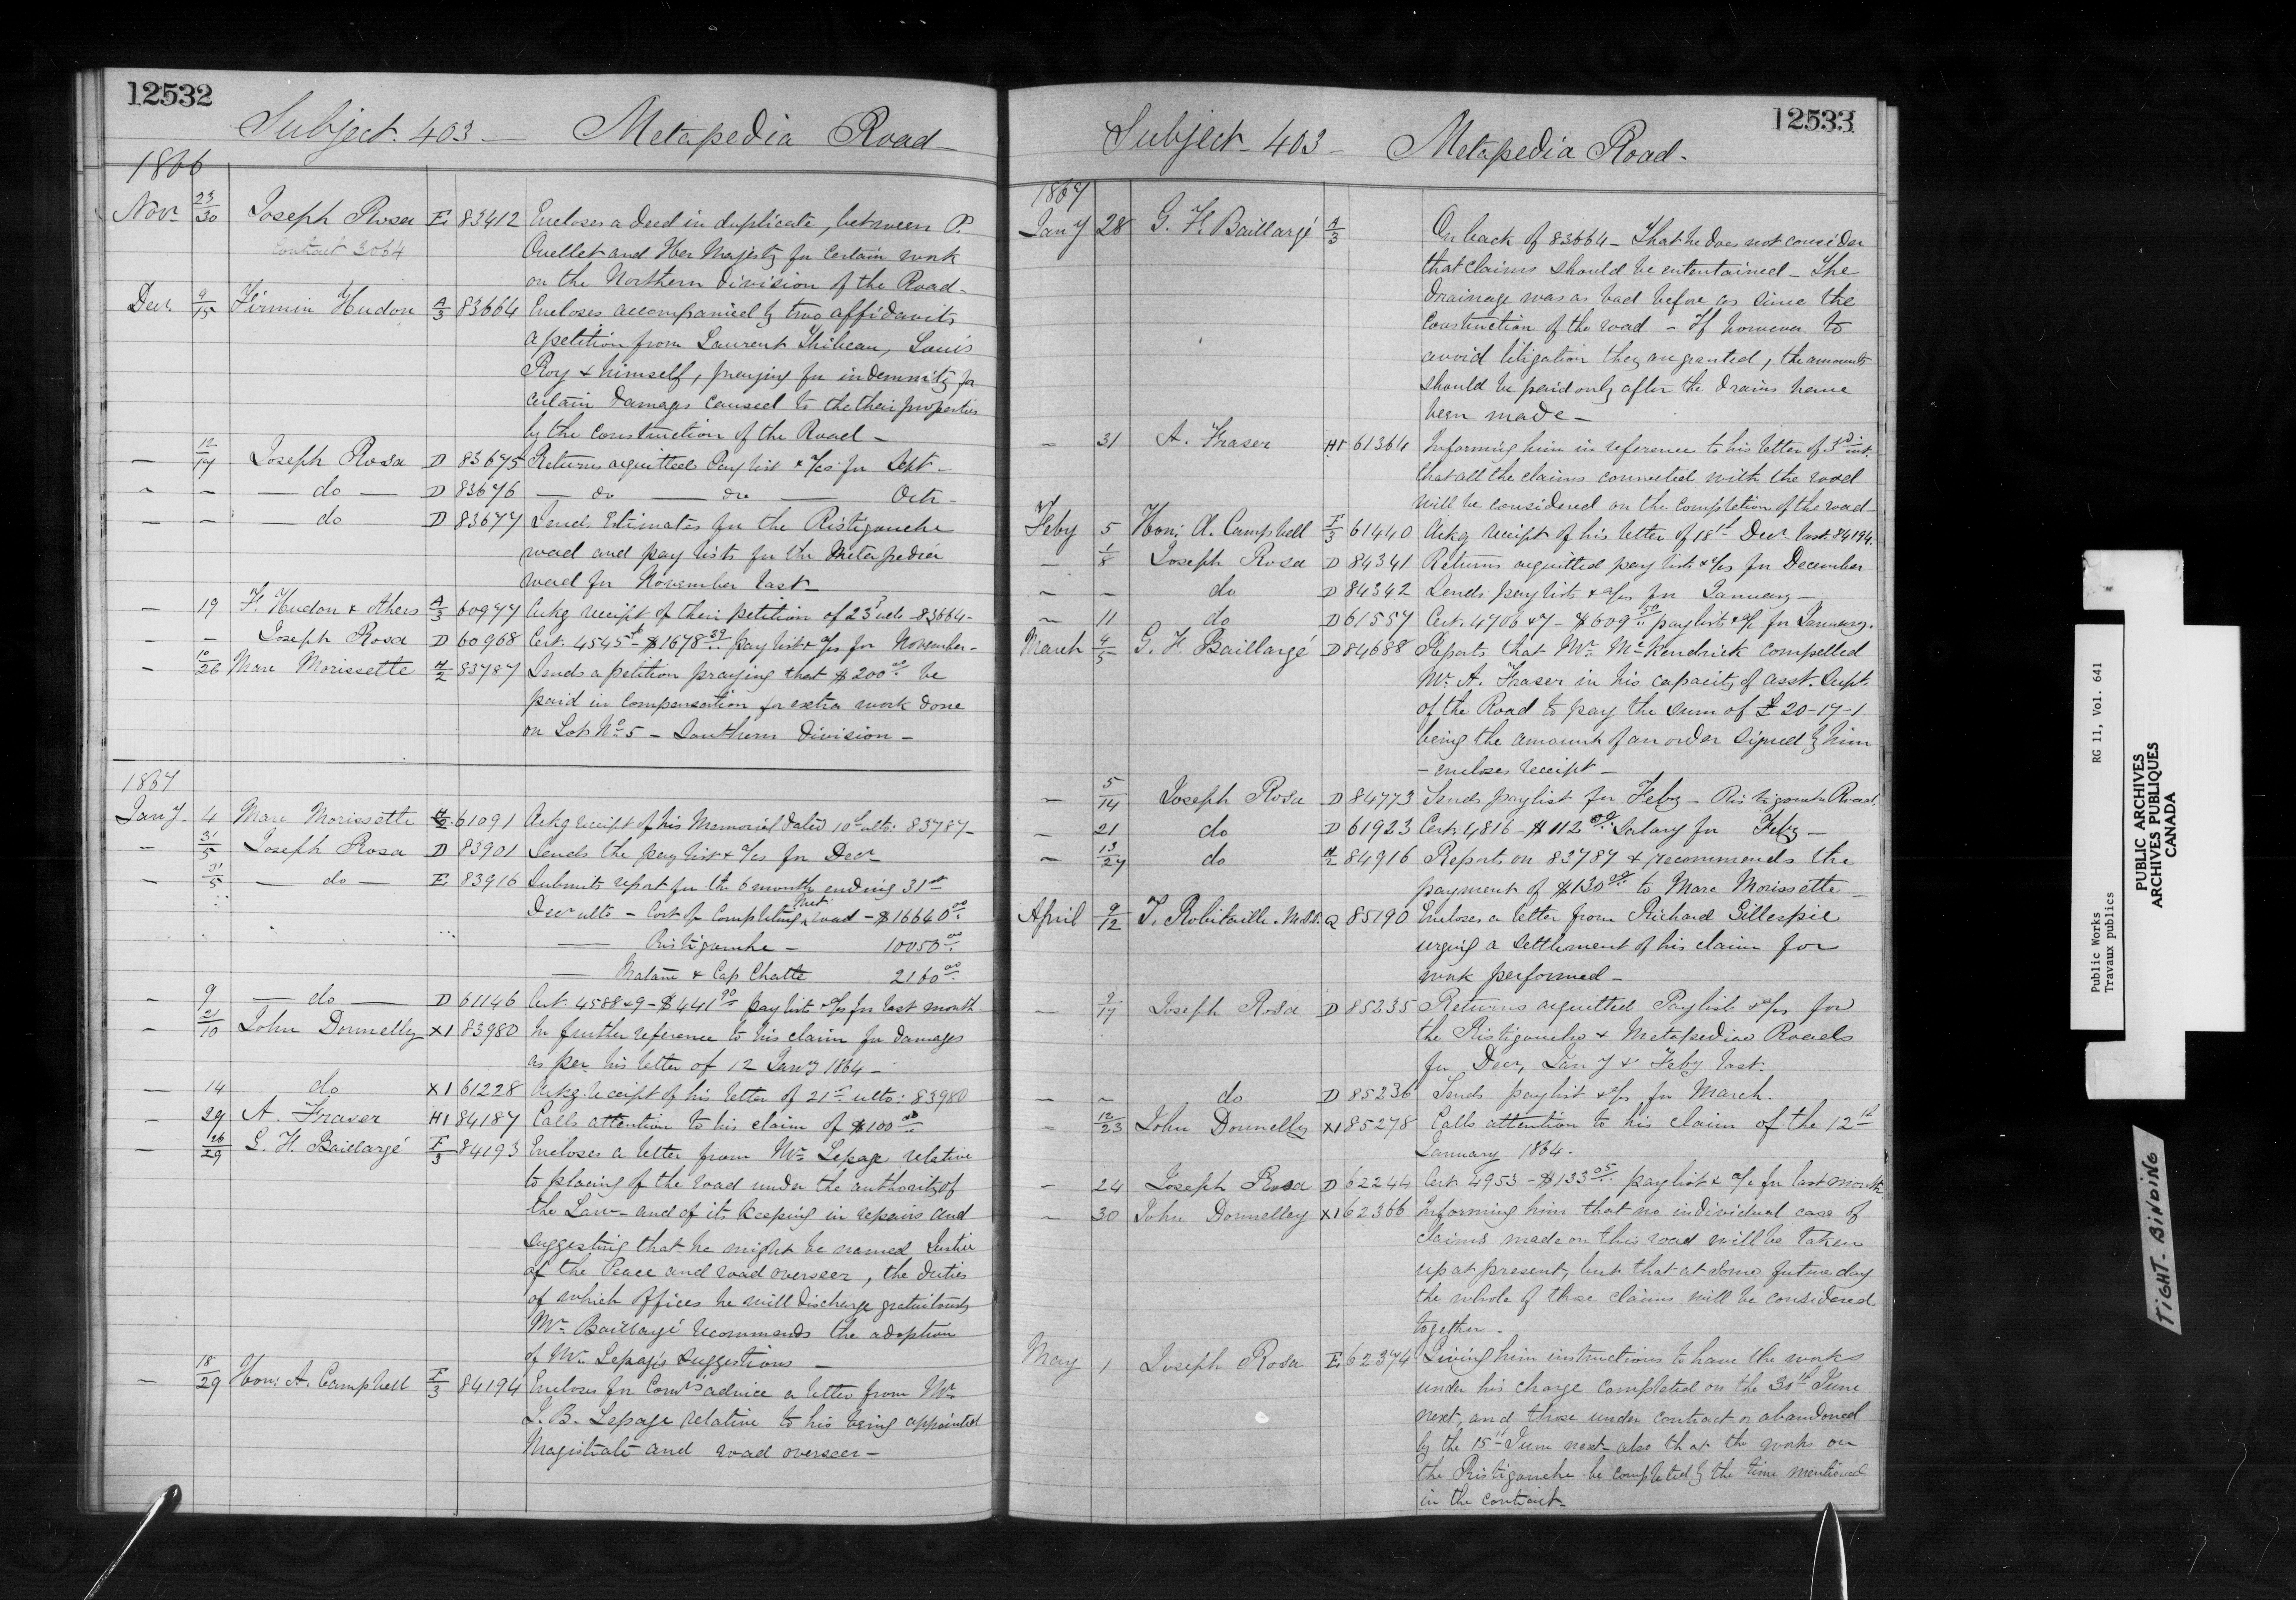 12532
Subject. 403 — Metapedia Road —
1866
Nov. 23/30 Joseph Rosa E 83412 Encloses a Deed in duplicate, between P.
Contract 3064 Ouellet and Her Majesty for certain work
on the Northern Division of the Road.
Decr. 9/15 Firmin Hudon A/3 83664 Encloses accompanied by two affidavits
a petition from Laurent Thibeau, Louis
Roy & himself, praying for indemnity for
certain damages caused to the their properties
by the construction of the Road —
— 12/14 Joseph Rosa D 83675 Returns acquitted Pay list & a/cs for Sept —
" — — do — D 83676 — do — do — Octr —
— — — do D 83677 Sends Estimates for the Ristigouche
road and pay lists for the Metapedia
road for November last
— 19 F. Hudon & others A/3 60977 Ackg receipt of their petition of 23d ulto 83664 —
— — Joseph Rosa D 60968 Cert. 4545 — $1678.39 pay list & a/cs for November —
— 10/26 Marc Morissette H/2 83787 Sends a petition praying that $200.00 be
paid in compensation for extra work done
on Lot No. 5 — Southern Division —
1867
Jany. 4 Marc Morissette H/2 61091 Ackg receipt of his Memorial dated 10th ulto: 83787 —
— 31/5 Joseph Rosa D 83901 Sends the pay list & a/cs for Decr
— 31/5 — do — E 83916 Submits report for the 6 months ending 31st
Decr ulto — Cost of completing Met. road — $16640.00
— Ristigouche — 10050.00
— Matane & Cap Chatte 2160.00
— 9 — do — D 61146 Cert. 4588 & 9 — $441.90 pay lists & a/cs for last month.
— 21/10 John Donnelly X1 83980 In further reference to his claim for damages
as per his letter of 12 Jany 1864 —
— 14 do X1 61228 Ackg receipt of his letter of 21st ulto: 83980
— 29 A. Fraser H1 84187 Calls attention to his claim of $100.00
— 26/29 G. F. Baillargé F/3 84193 Encloses a letter from Mr. Lepage relative
to placing of the road under the authority of
the Law — and of its keeping in repairs and
suggesting that he might be named Justice
of the Peace and road overseer, the duties
of which offices he will discharge gratuitously
Mr. Baillargé recommends the adoption
of Mr. Lepage's suggestions —
— 18/29 Hon: A. Campbell F/3 84194 Encloses for Comrs' advice a letter from Mr
J. B. Lepage relative to his being appointed
Magistrate and road overseer —
12533
Subject — 403 — Metapedia Road —
1867
Jany 28 G. F. Baillargé A/3 On back of 83664 — That he does not consider
that claims should be entertained — The
drainage was as bad before as since the
construction of the road — If however to
avoid litigation they are granted, the amounts
should be paid only after the drains have
been made —
— 31 A. Fraser H1 61364 Informing him in reference to his letter of 3rd inst.
that all the claims connected with the road
will be considered on the completion of the road —
Feby 5 Hon: A. Campbell F/3 61440 Ackg receipt of his letter of 18th Decr last 84194.
— 1/8 Joseph Rosa D 84341 Returns acquitted pay lists & a/cs for December
— — do D 84342 Sends pay lists & a/cs for January —
— 11 do D 61557 Cert. 4706 & 7 — $609.50 pay lists & a/c for January.
March 4/5 G. F. Baillargé D 84688 Reports that Mr. McKendrick compelled
Mr. A. Fraser in his capacity of asst. Supt.
of the Road to pay the sum of £20-17-1
being the amount of an order signed by him
— encloses receipt —
— 5/14 Joseph Rosa D 84773 Sends pay list for Feby — Ristigouche Road.
— 21 do D 61923 Cert. 4816 — $112.00 Salary for Feby —
— 13/27 do H/2 84916 Report on 83787 & recommends the
payment of $130.00 to Marc Morissette —
April 9/12 T. Robitaille. M.P.P. Q 85190 Encloses a letter from Richard Gillespie
urging a settlement of his claim for
work performed —
— 9/17 Joseph Rosa D 85235 Returns acquitted Pay lists & a/cs for
the Ristigouche & Metapediac Roads
for Decr, Jany & Feby last.
— — do D 85236 Sends pay list & a/cs for March.
— 12/23 John Donnelly X1 85278 Calls attention to his claim of the 12th
January 1864.
— 24 Joseph Rosa D 62244 Cert. 4953 — $133.05 pay list & a/c for last month
— 30 John Donnelley X1 62366 Informing him that no individual case of
claims made on this road will be taken
up at present, but that at some future day
the whole of those claims will be considered
together —
May 1 Joseph Rosa E 62374 Giving him instructions to have the works
under his charge completed on the 30th June
next, and those under contract or abandoned
by the 15th June next — also that the works on
the Ristigouche be completed by the time mentioned
in the contract —
Public Works RG 11, Vol. 641
Travaux publics
PUBLIC ARCHIVES
ARCHIVES PUBLIQUES
CANADA
TIGHT-BINDING